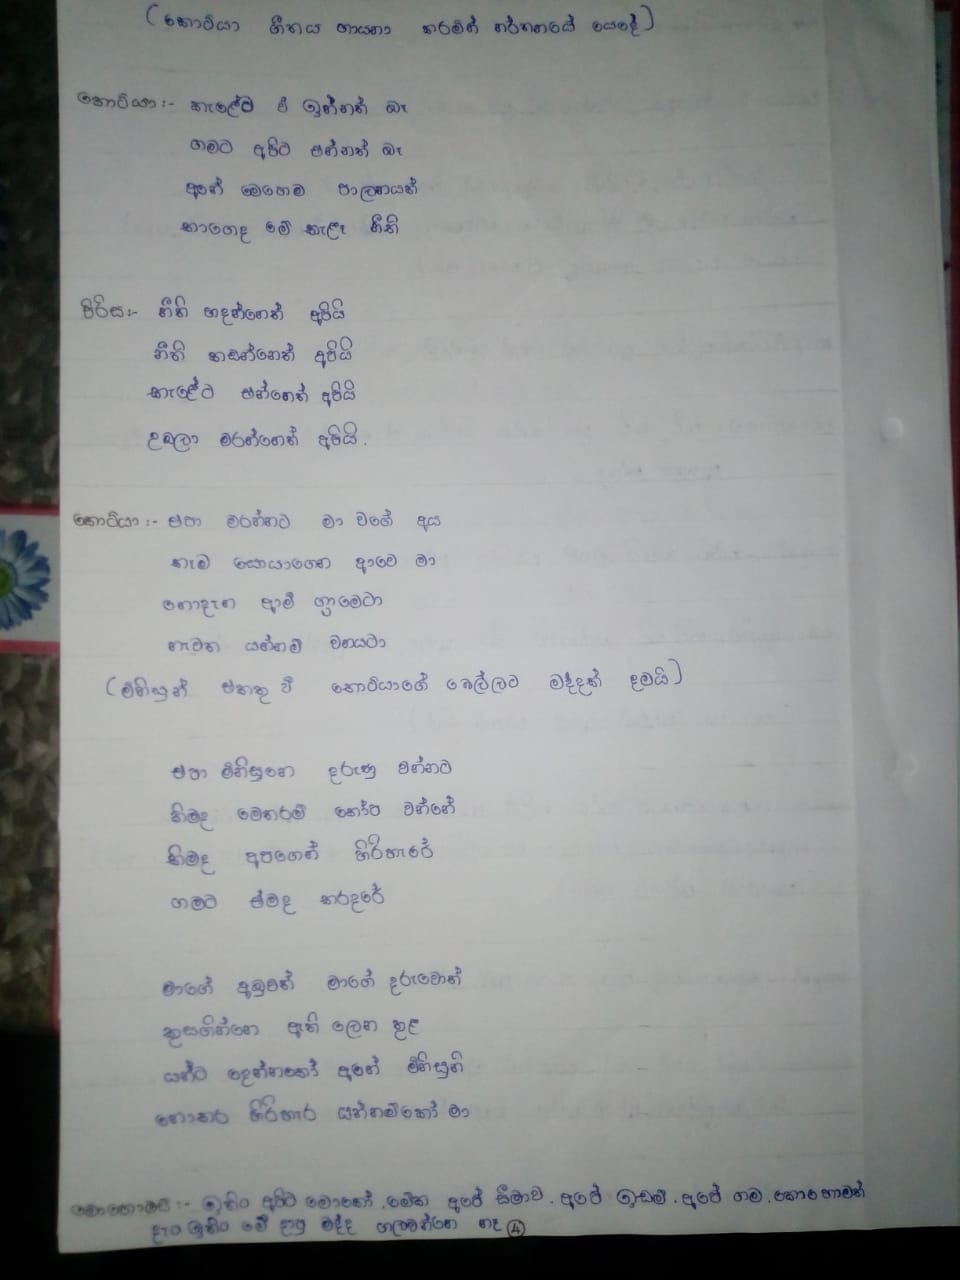 (කොටියා ගීතය ගායනා කරමින් නර්තනයේ යෙදේ)
කොටියා:- කැළේට වී ඉන්නත් බෑ
ගමට අපිට එන්නත් බෑ
අනේ මෙහෙම පාලනයක්
කාගෙද මේ කැළෑ නීති
පිරිස:- නීති හදන්නෙත් අපියි
නීති කඩන්නෙත් අපියි
කැළේට එන්නෙත් අපියි
උඹලා මරන්නෙත් අපියි.
කොටියා:- එපා මරන්නට මා වගේ අය
කෑම සොයාගෙන ආවෙ මා
නොදැන ආමි ග්‍රාමෙටා
නැවත යන්නම් වනයටා
(මිනිසුන් එකතු වී කොටියාගේ බෙල්ලට මද්දක් දමයි)
එපා මිනිසුනෙ දරුණු වන්නට
කිමද මෙතරම් කෝප වන්නේ
කිමද අපගෙන් හිරිහැරේ
ගමට එමද කරදරේ
මාගේ අඹුවත් මාගේ දරුවොත්
කුසගින්නෙ ඇති ලෙන තුළ
යන්ට දෙන්නකෝ අනේ මිනිසුනි
නොකර හිරිහැර යන්නම්කෝ මා
ඉතිං අපිට මොකෝ. මේක අපේ සීමාව. අපේ ඉඩම්. අපේ ගම. කොහොමත්
දැං ඉතිං මේ දාපු මද්ද ගලවන්නෙ නෑ ④